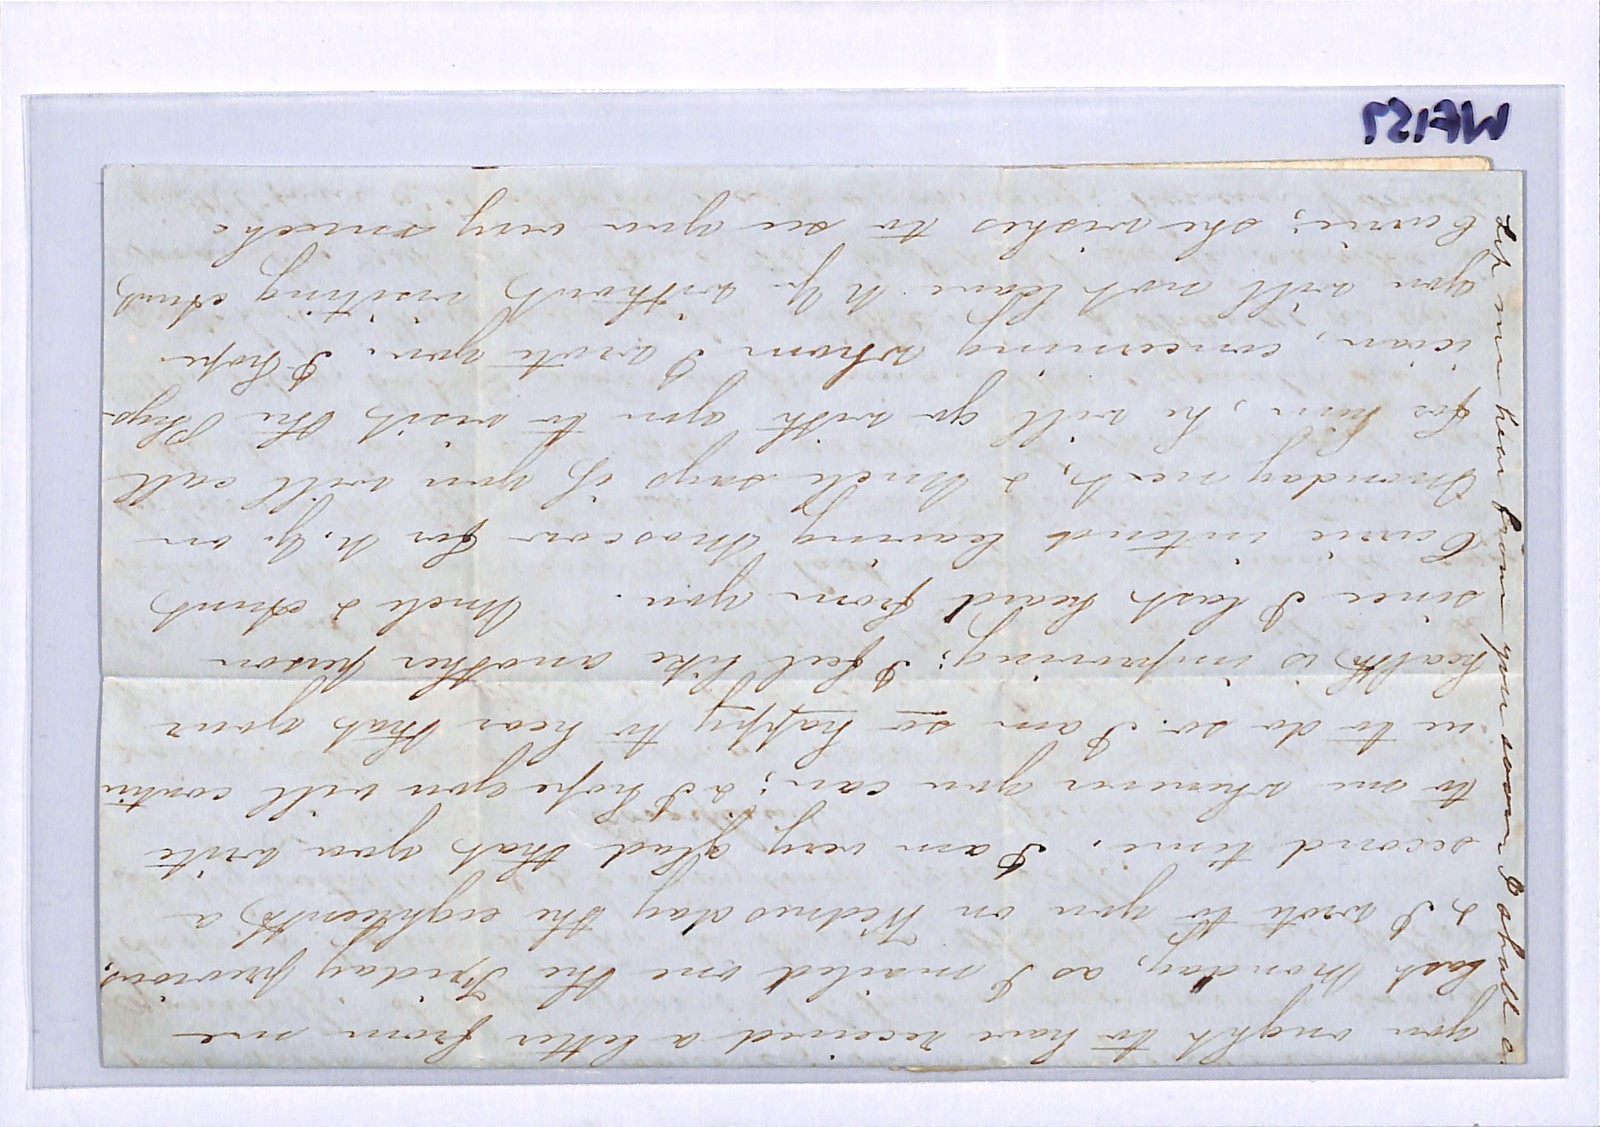 you ought to have received a letter from me
last Monday, as I mailed one the Friday previous,
& I wrote to you on Wednesday the eighteenth, a
second time. I am very glad that you write
to me whenever you can; & I hope you will contin
ue to do so. I am so happy to hear that your
health is improving; I feel like another person
since I last heard from you. Uncle & Aunt
Carrie intend leaving Moscow for N.Y. on
Monday next, & Uncle says if you will call
for him, he will go with you to visit the Phys-
ician, concerning whom I wrote you. I hope
you will not leave N.Y. without visiting Aunt
Carrie; she wishes to see you very much.
Let me hear from you soon I shall
WF157